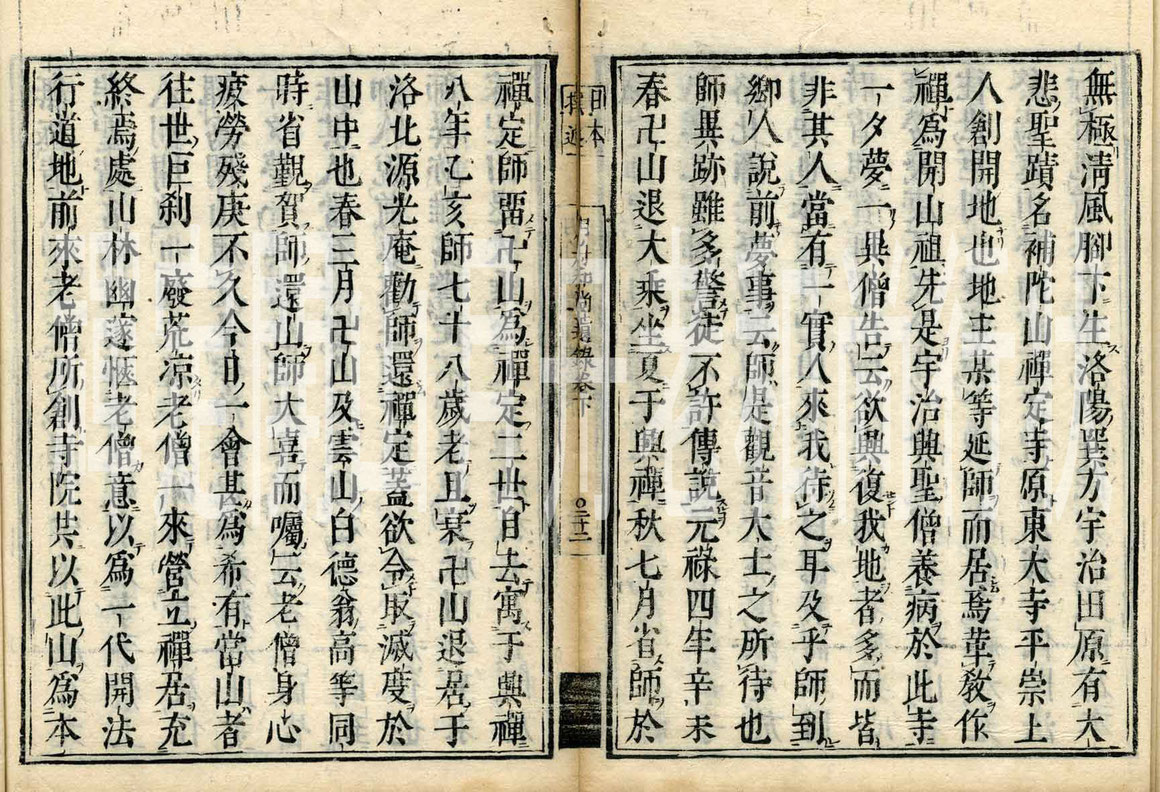 無極淸風脚下生洛陽巽方宇治田原有大
悲聖蹟名補陀山禪定寺原東大寺平崇上
人創開地也地主某等延師而居焉革敎作
禪爲開山祖先是宇治興聖僧養病於此寺
一夕夢一異僧告云欲興復我地者多而皆
非其人當有一實人來我待之耳及乎師到
鄉人說前夢事云師是觀音大士之所待也
師異跡雖多警徒不許傳說元祿四年辛未
春卍山退大乘坐夏于興禪秋七月省師於
日本
撰述
月舟和尙遺錄卷下
〇二十二
禪定師留卍山爲禪定二世自去寓于興禪
八年乙亥師七十八歲老且衰卍山退居于
洛北源光庵勸師還禪定蓋欲令取滅度於
山中也春三月卍山及雲山白德翁高等同
時省覲賀師還山師大喜而囑云老僧身心
疲勞殘庚不久今日一會甚爲希有當山者
往世巨刹一廢荒凉老僧一來營立禪居充
終焉處山林幽邃愜老僧意以爲一代開法
行道地前來老僧所創寺院共以此山爲本